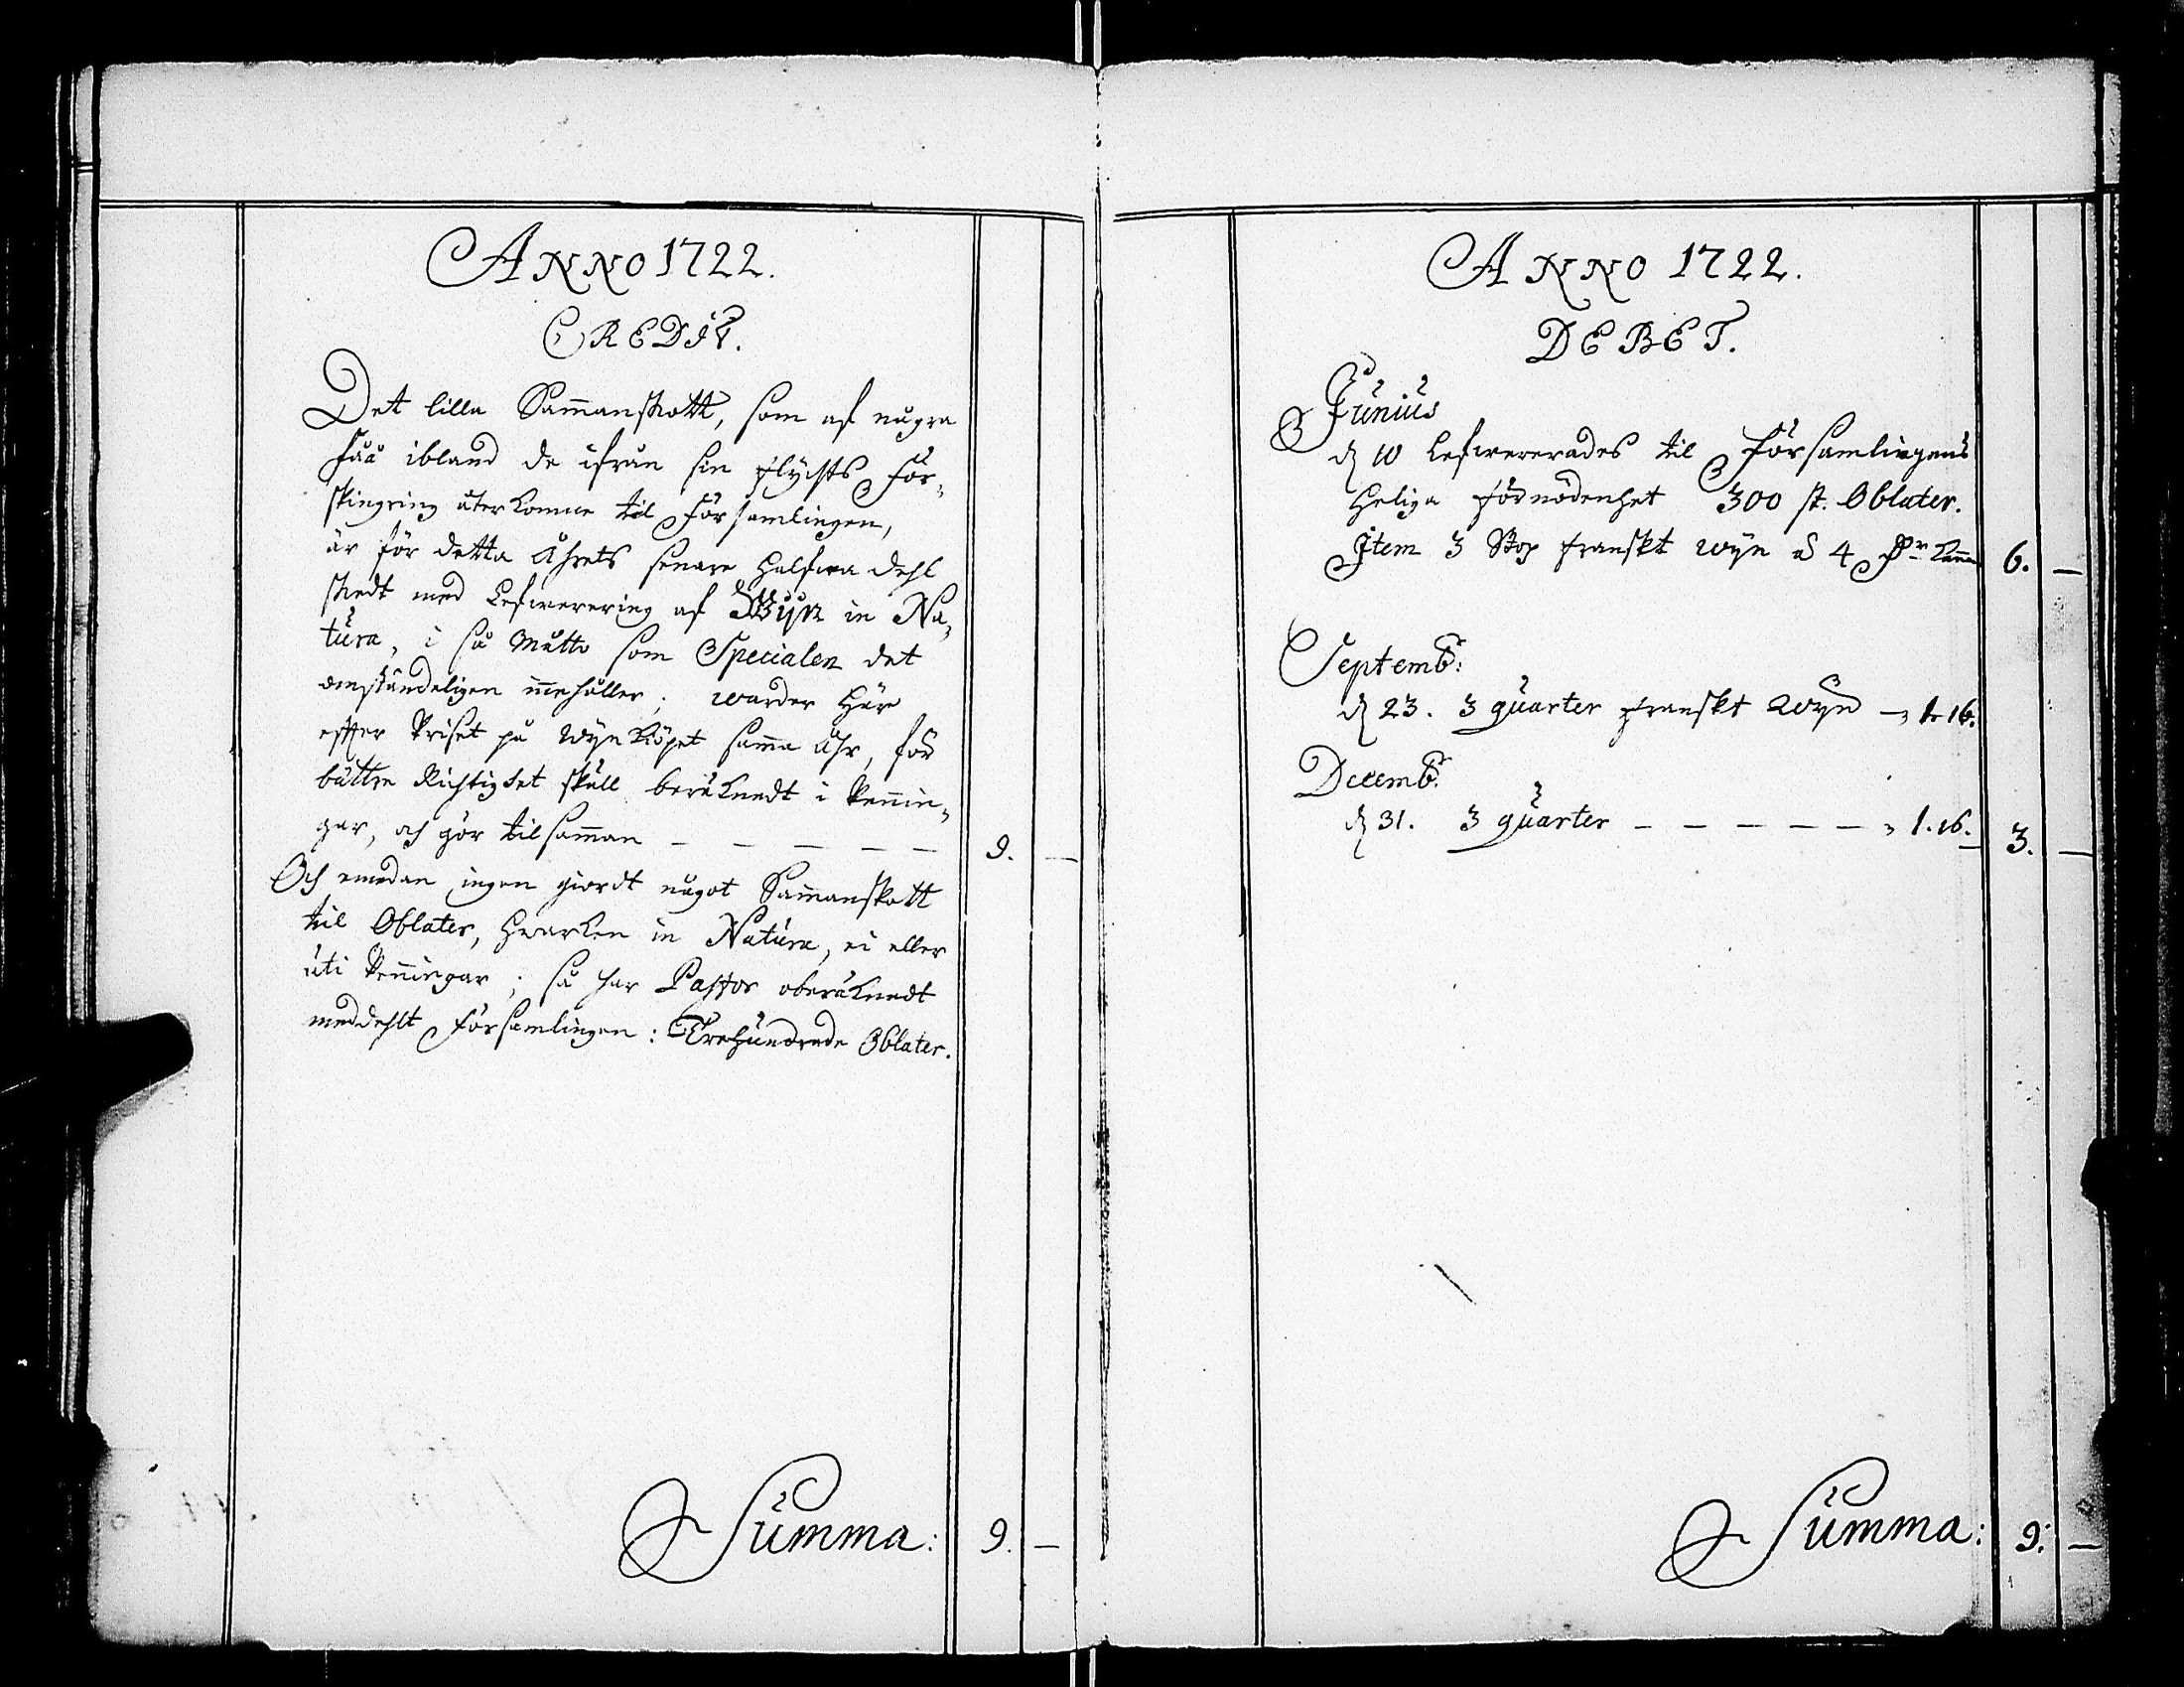 ANNO 1722.
CREDIT.
Det lilla Sammanskott, som af några
fåå ibland de ifrån sin flychts för-
skingring återkomne til församlingen,
är för detta Åhrets senare halfwa dehl
skedt med Lefwerering af Wijn in Na-
tura, i så måtto som Specialen det
omständeligen innehåller; warder här
effter Priset på Wyn Kiöpet samma Åhr, för
bättre Richtighet skull beräknadt i Pennin-
gar, och gör tilsamman _ _ _ _ _ 9. _
Och emedan ingen giordt något Sammanskott
til Oblater, hwarken in Natura, ei eller
uti Penningar; så har Pastor oberäknadt
meddehlt församlingen: Trehundrade Oblater.
Summa: 9. _
ANNO 1722.
DEBET.
Junius
d 10 Lefwererades til församlingens
heliga förnödenhet 300 st. Oblater.
Item 3 Stop franskt wyn à 4 Pr Kann 6. _
Septemb:
d 23. 3 quarter franskt Wyn _ 1.16.
Decemb.
d 31. 3 quarter _ _ _ _ _ 1.16. 3. _
Summa: 9. _